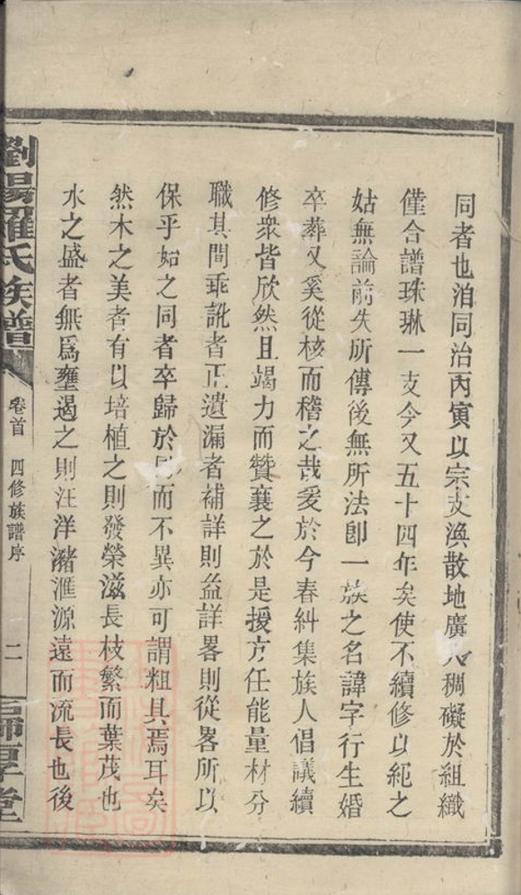 同者也洎同治丙寅以宗支渙散地廣人稠礙於組織
僅合譜珠琳一支今又五十四年矣使不續修以紀之
姑無論前失所傳後無所法卽一族之名諱字行生婚
卒葬又奚從核而稽之哉爰於今春糾集族人倡議續
修衆皆欣然且竭力而贊襄之於是援方任能量材分
職其間乖訛者正遺漏者補詳則益詳畧則從畧所以
保乎始之同者卒歸於同而不異亦可謂粗具焉耳矣
然木之美者有以培植之則發榮滋長枝繁而葉茂也
水之盛者無爲壅遏之則汪洋瀦滙源遠而流長也後
劉陽羅氏族譜
卷首
四修族譜序
二
師厚堂